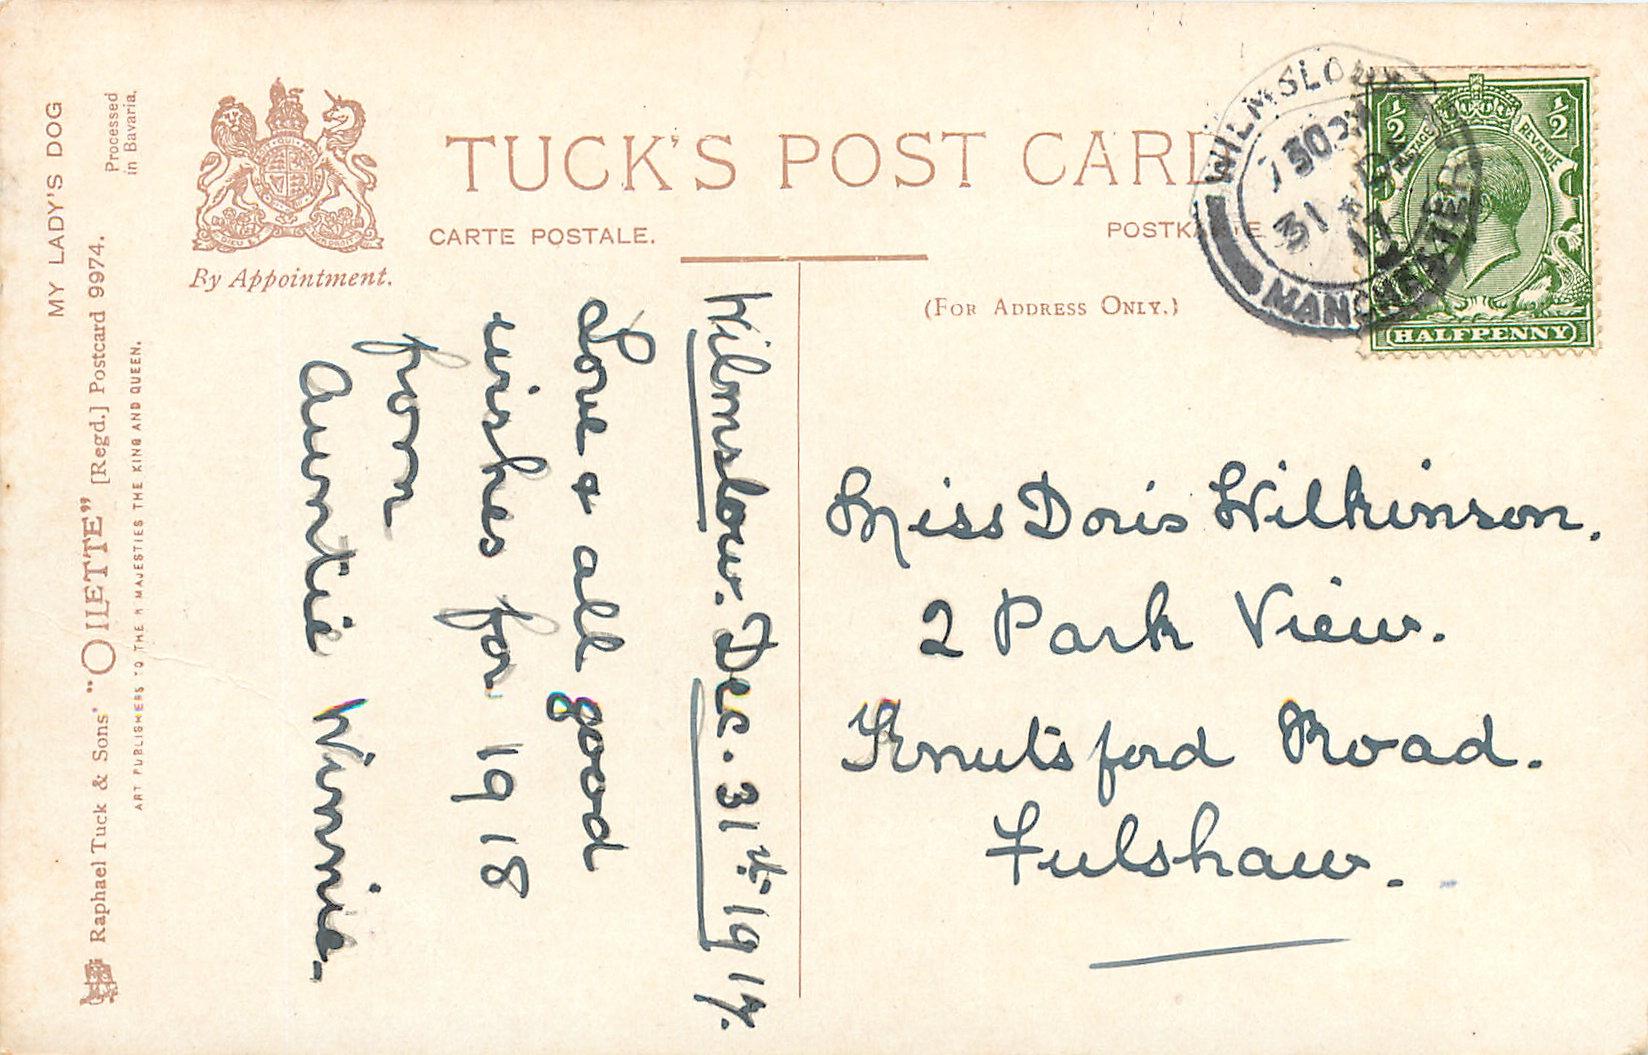 MY LADY'S DOG
Processed
in Bavaria.
Raphael Tuck & Sons' "OILETTE" [Regd.] Postcard 9974.
ART PUBLISHERS TO THEIR MAJESTIES THE KING AND QUEEN.
By Appointment.
TUCK'S POST CARD
CARTE POSTALE.
POSTKARTE
(FOR ADDRESS ONLY.)
WILMSLOW
31 DE
17
MANCHESTER
½ ½
POSTAGE REVENUE
HALFPENNY
Wilmslow. Dec. 31st 1917.
Love & all good
wishes for 1918
from
Auntie Winnie.
Miss Doris Wilkinson.
2 Park View.
Knutsford Road.
Fulshaw.